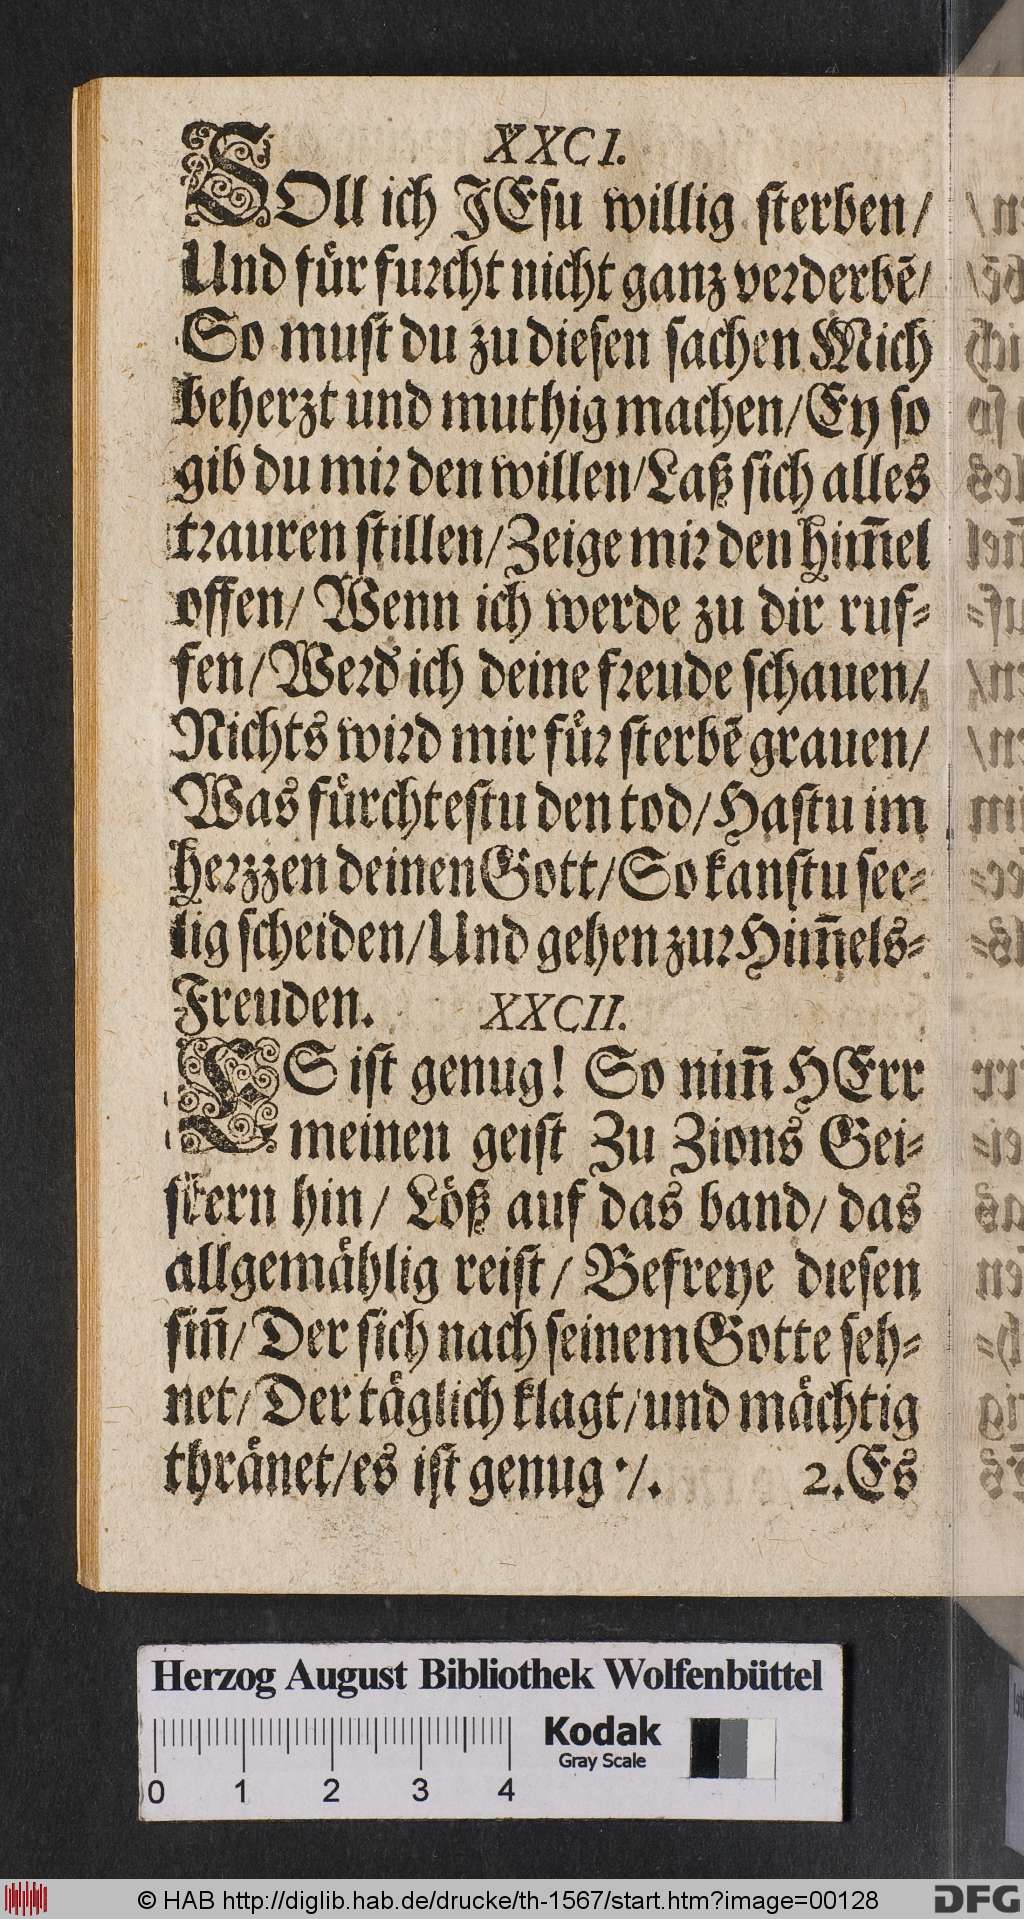 XXCI.
SOll ich JEsu willig sterben/
Und für furcht nicht ganz verderbē/
So must du zu diesen sachen Mich
beherzt und muthig machen/ Ey so
gib du mir den willen/ Laß sich alles
trauren stillen/ Zeige mir den him̄el
offen/ Wenn ich werde zu dir ruf=
fen/ Werd ich deine freude schauen/
Nichts wird mir für sterbē grauen/
Was fürchtestu den tod/ Hastu im
herzzen deinen Gott/ So kanstu see=
lig scheiden/ Und gehen zur Him̄els=
Freuden.
XXCII.
ES ist genug! So nim̄ HErr
meinen geist Zu Zions Gei=
stern hin/ Löß auf das band/ das
allgemählig reist/ Befreye diesen
sin̄/ Der sich nach seinem Gotte seh=
net/ Der täglich klagt/ und mächtig
thränet/ es ist genug ·/.
2. Es
Herzog August Bibliothek Wolfenbüttel
Kodak
Gray Scale
0 1 2 3 4
© HAB http://diglib.hab.de/drucke/th-1567/start.htm?image=00128
DFG